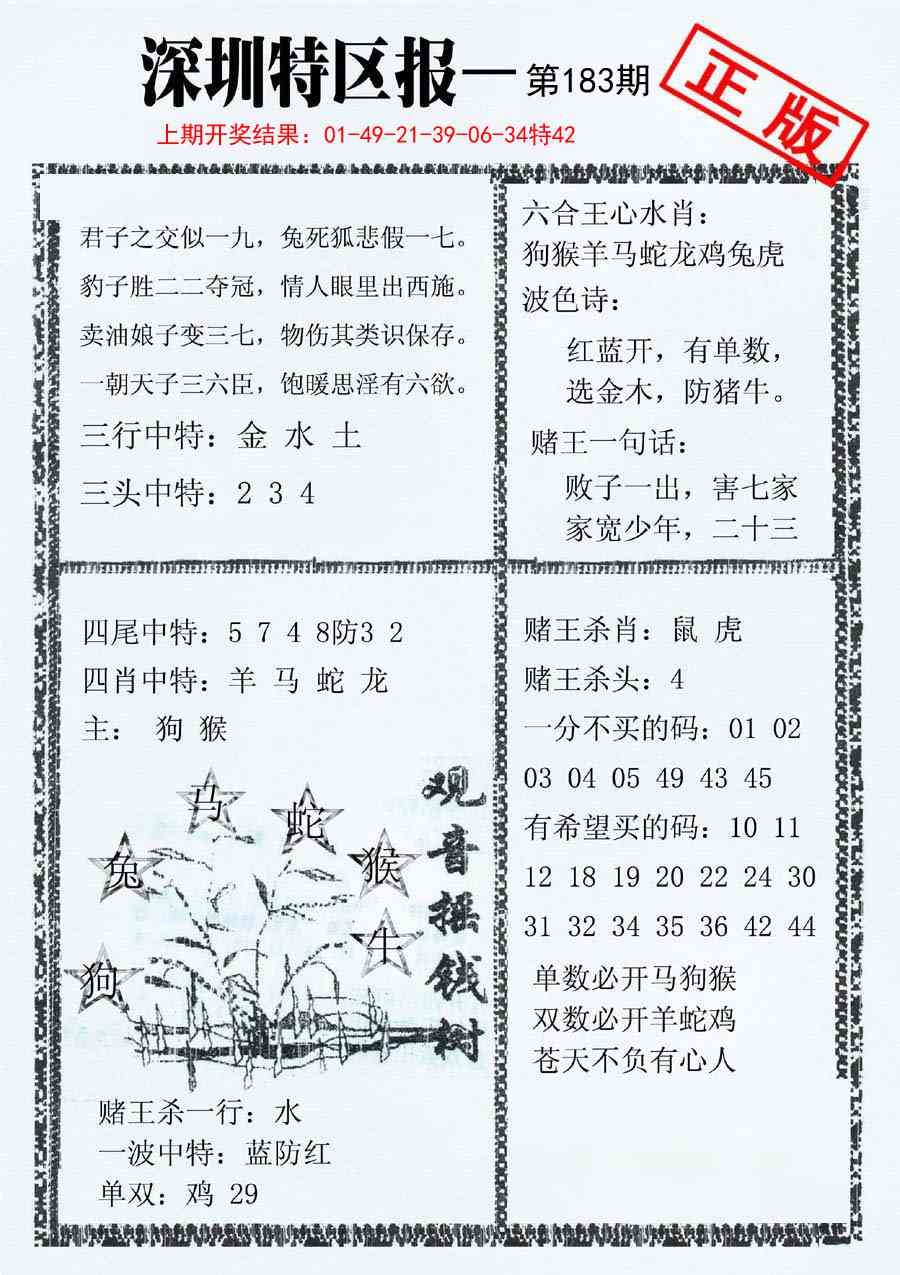 深圳特区报—第183期
正版
上期开奖结果：01-49-21-39-06-34特42
君子之交似一九，兔死狐悲假一七。
豹子胜二二夺冠，情人眼里出西施。
卖油娘子变三七，物伤其类识保存。
一朝天子三六臣，饱暖思淫有六欲。
三行中特：金 水 土
三头中特：2 3 4
六合王心水肖：
狗猴羊马蛇龙鸡兔虎
波色诗：
红蓝开，有单数，
选金木，防猪牛。
赌王一句话：
败子一出，害七家
家宽少年，二十三
四尾中特：5 7 4 8防3 2
四肖中特：羊 马 蛇 龙
主： 狗 猴
马
蛇
兔
猴
牛
狗
观音摇钱树
赌王杀一行：水
一波中特：蓝防红
单双：鸡 29
赌王杀肖：鼠 虎
赌王杀头：4
一分不买的码：01 02
03 04 05 49 43 45
有希望买的码：10 11
12 18 19 20 22 24 30
31 32 34 35 36 42 44
单数必开马狗猴
双数必开羊蛇鸡
苍天不负有心人